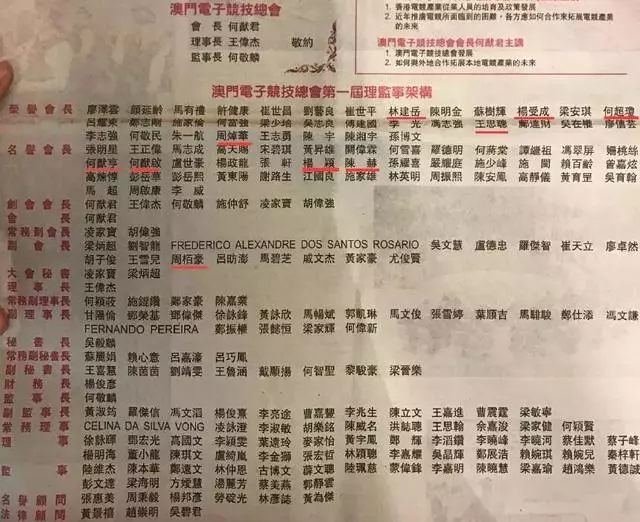 澳門電子競技總會
會長 何猷君
理事長 王偉杰 敬約
監事長 何敬麟
1. 香港電競產業從業人員的培育及政策發展
2. 近年推廣電競所面臨到的困難,各方應如何合作來拓展電競產業
的未來
澳門電子競技總會會長何猷君主講
1. 澳門電競產業發展
2. 如何與外地合作拓展本地電競產業的未來
澳門電子競技總會第一屆理監事架構
榮譽會長 廖澤雲 顏延齡 馬有禮 許健康 崔世昌 劉藝良 崔世平 林建岳 陳明金 蘇樹輝 楊受成 梁安琪 何超瓊
呂耀東 鄭志剛 施家倫 何富強 梁少培 吳志良 傅建國 李光 馮志強 王思聰 鄭達財 吳在權
李志強 何敬民 朱一航 周焯華 王志勇 陳宇 陳湘宇 孫博文
名譽會長 張明星 王正偉 馬志成 高天賜 宋碧琪 黃昇雄 關偉霖 何雪喬 羅德明 何蒞棠 譚繼祖 馮翠屏 姍桃絲
何猷亨 何猷啟 盧世豪 楊政龍 張軒 楊穎 陳赫 孫耀喜 嚴繼庭 施少峰 施閩 賴百齡 曾嘉炫
高煉博 彭岳華 彭岳熙 黃東陽 謝路生 江國良 施家雄 林英明 周振熙 陳安鳳 高靜儀 黃育罡 吳育翰
馬超 周啟康 李威
創會會長 何猷君 王偉杰 何敬麟 施仲舒 凌家寶 胡偉強
會長 何猷君
常務副會長 凌家寶 胡偉強
副會長 梁炳超 劉智龍 FREDERICO ALEXANDRE DOS SANTOS ROSARIO 吳文慧 盧德忠 羅傑智 崔天立 廖卓然
胡子俊 王雪兒 周栢豪 呂昉澎 馬碧芝 戚文杰 黃家豪 尤俊賢
大會秘書 凌家寶 梁炳超
理事長 王偉杰
常務副理事長 何穎荍 施錕鑽 鄭家豪 陳嘉業
副理事長 甘陽倫 鄧榮基 鄧偉傑 徐詠鋒 黃詠欣 馬暢斌 郭凱琳 馬文俊 張雪婷 葉順吉 馬騑駿 鄭仕添 馮文謙
FERNANDO PEREIRA 鄭振權 張懿恒 梁家輝 何偉新
秘書長 吳毅麟
常務副秘書長 蘇麗娟 賴心意 呂嘉濠 呂巧鳳
副秘書長 王喜慧 陳茵茵 劉靖雯 王魯涵 戴願揚 何智聖 黎駿豪 梁晉樂
財務長 楊俊彥
監事長 何敬麟
副監事長 黃淑筠 羅傑信 馮文滔 楊俊熹 李亮途 曹嘉瞾 李兆生 陳立文 王嘉進 曹震霆 梁敏寧
常務理事 CELINA DA SILVA VONG 凌詠澄 李淑敏 胡樂銘 陳威名 洪誌聰 王思翰 余嘉浚 梁家健 何穎賢
理事 徐詠暉 鄧宏光 高國文 李穎雯 葉遠玲 麥家怡 黃宇鳳 鄭輝 李滔鑽 李曉峰 李曉河 蔡佳默 蔡子峰
楊明海 董小龍 陳琪文 盧綺嵐 李金獅 張宏哲 林穎聰 李嘉耀 吳品輝 鄭展浩 賴婉琪 賴婉兒 秦梓軒
監事 陸維杰 陳本華 鄭遠文 林仲恩 古博文 薛文聰 陸珮慈 蒙偉鋒 李嘉明 陳曉慧 梁嘉瑜 趙鴻樂 黃德誠
彭文達 梁海明 方燰慧 湯麗芳 蔡美燕 郭靜雲
名譽顧問 張惠美 周秉毅 楊邦彥 勞碇光 林彥誌 黃為傑
法律顧問 黃景禧 趙崇明 吳碧君